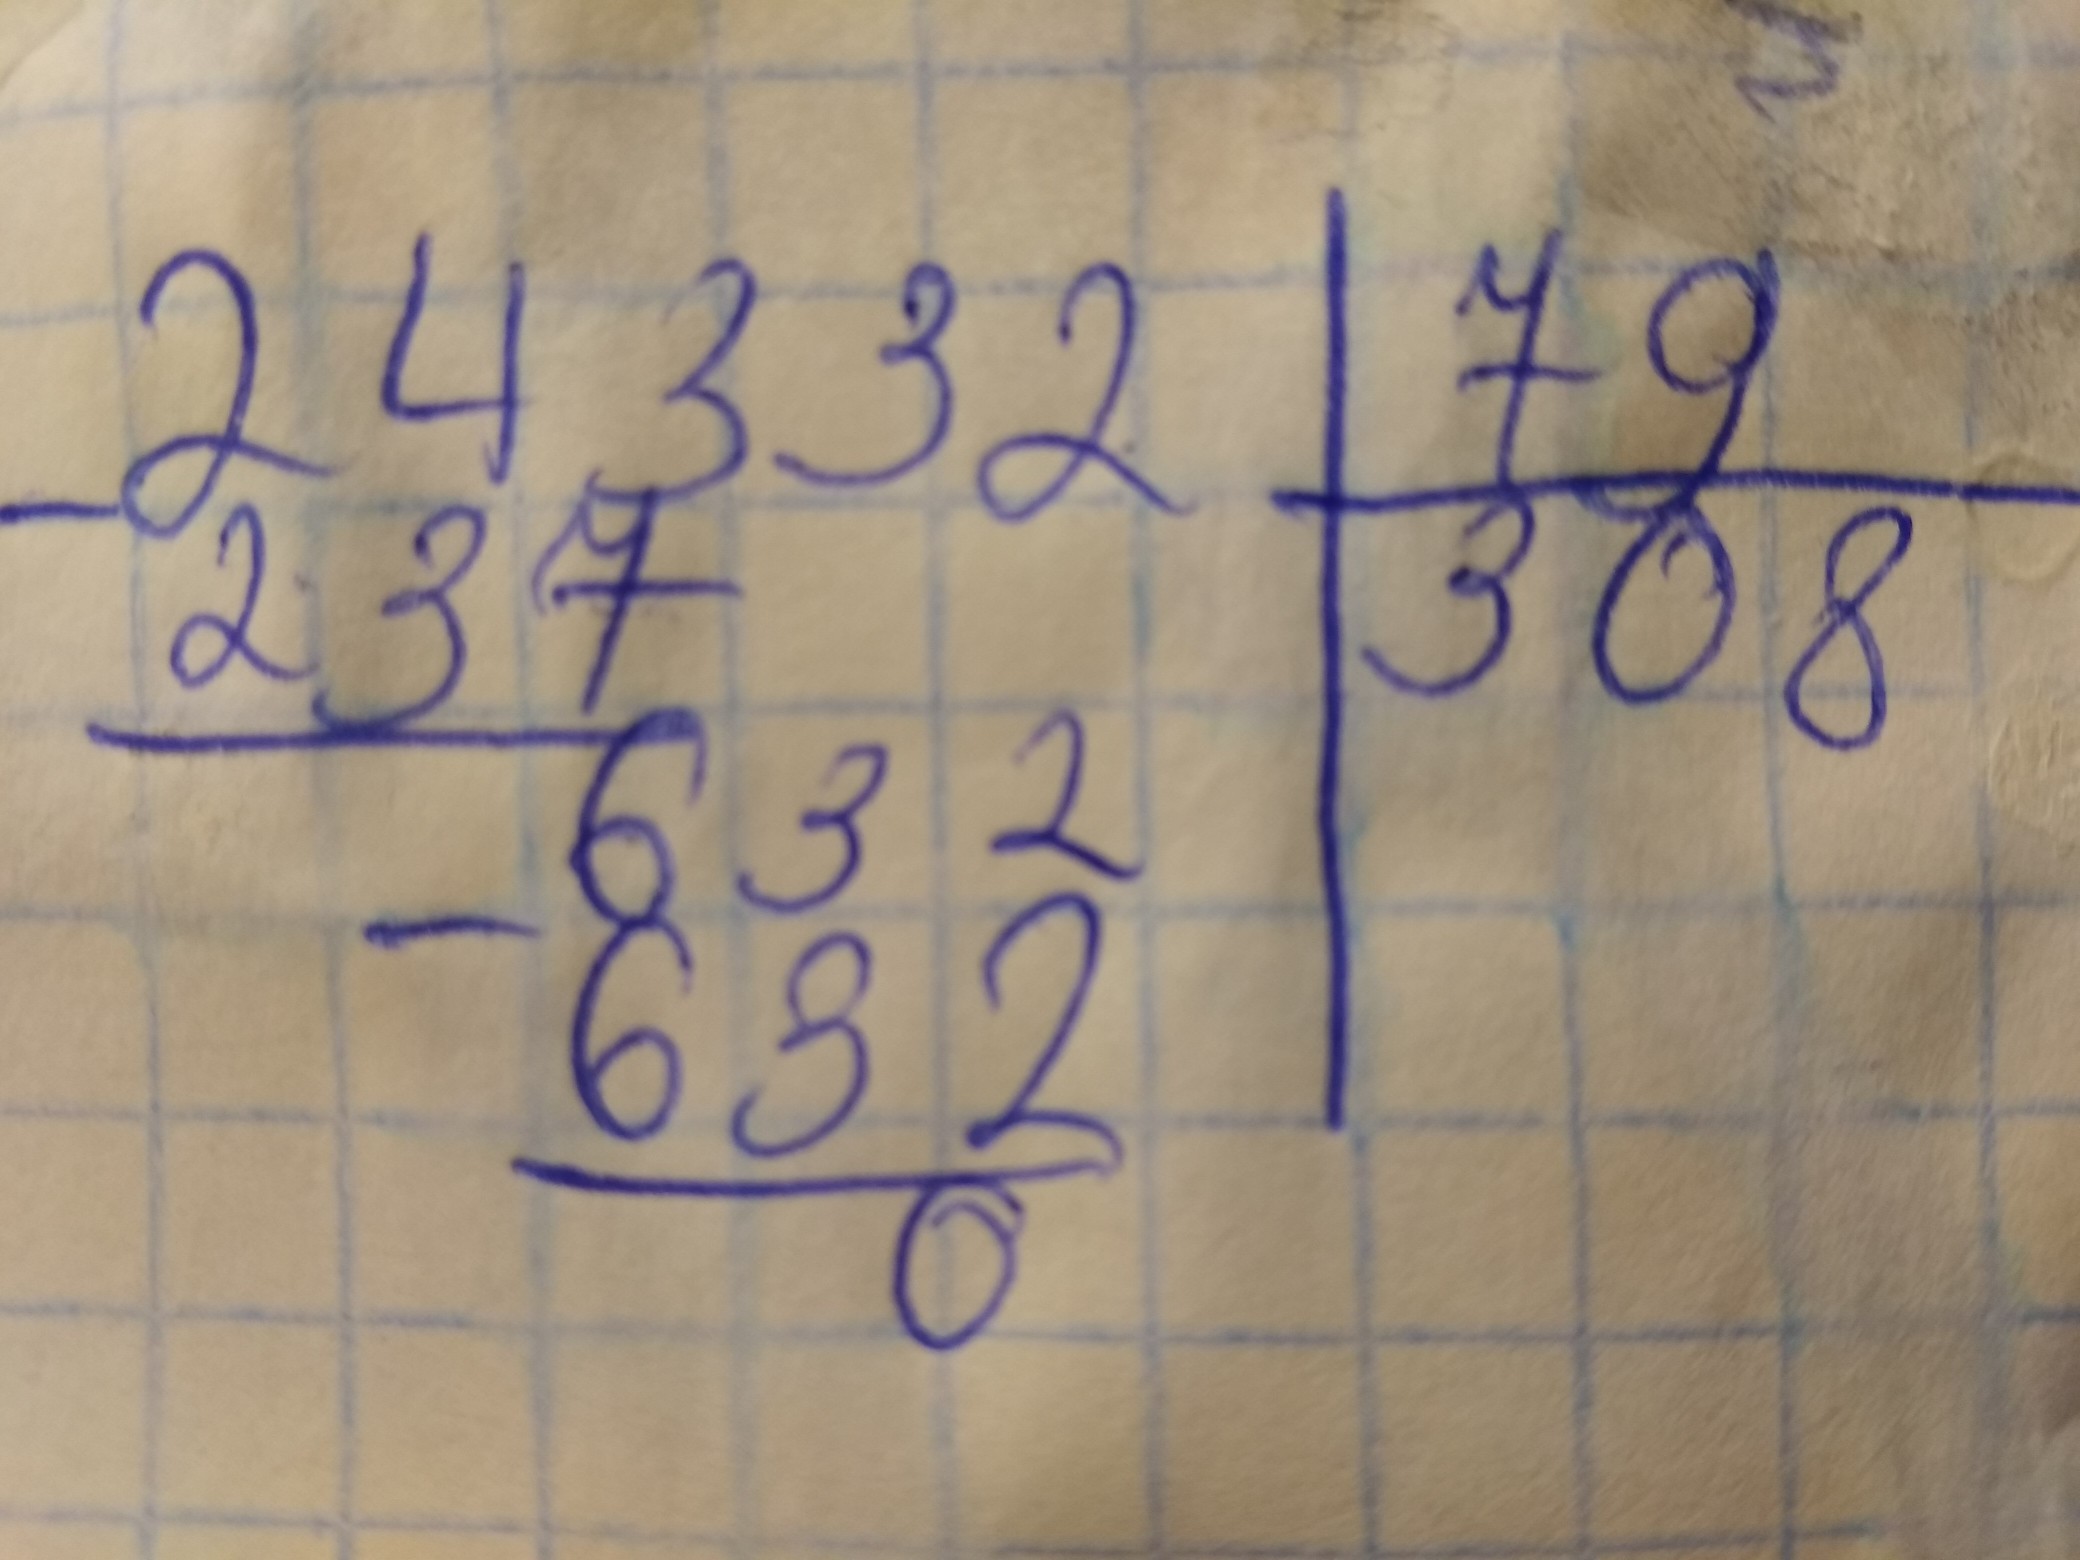 24332 79
- 237 308
632
- 632
0